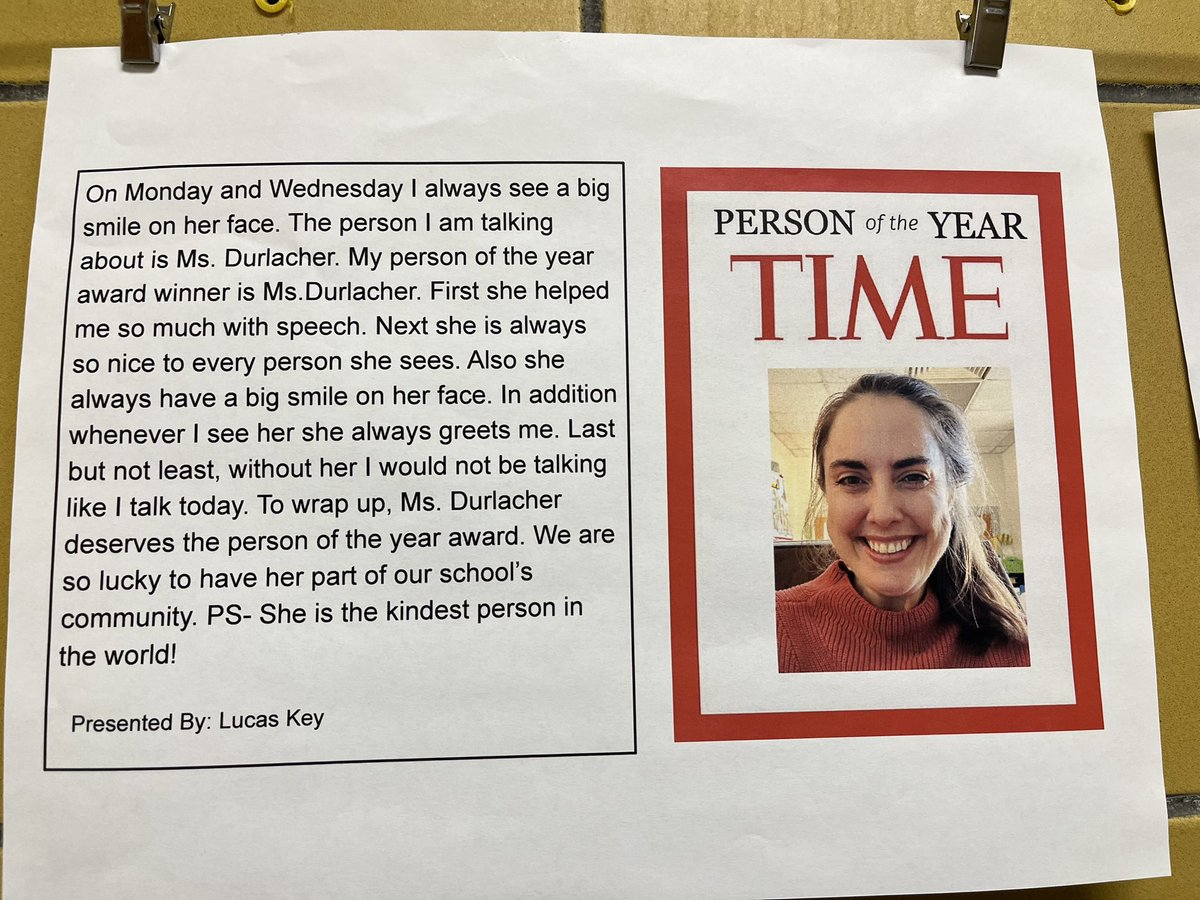 On Monday and Wednesday I always see a big
smile on her face. The person I am talking
about is Ms. Durlacher. My person of the year
award winner is Ms.Durlacher. First she helped
me so much with speech. Next she is always
so nice to every person she sees. Also she
always have a big smile on her face. In addition
whenever I see her she always greets me. Last
but not least, without her I would not be talking
like I talk today. To wrap up, Ms. Durlacher
deserves the person of the year award. We are
so lucky to have her part of our school’s
community. PS- She is the kindest person in
the world!
Presented By: Lucas Key
PERSON of the YEAR
TIME